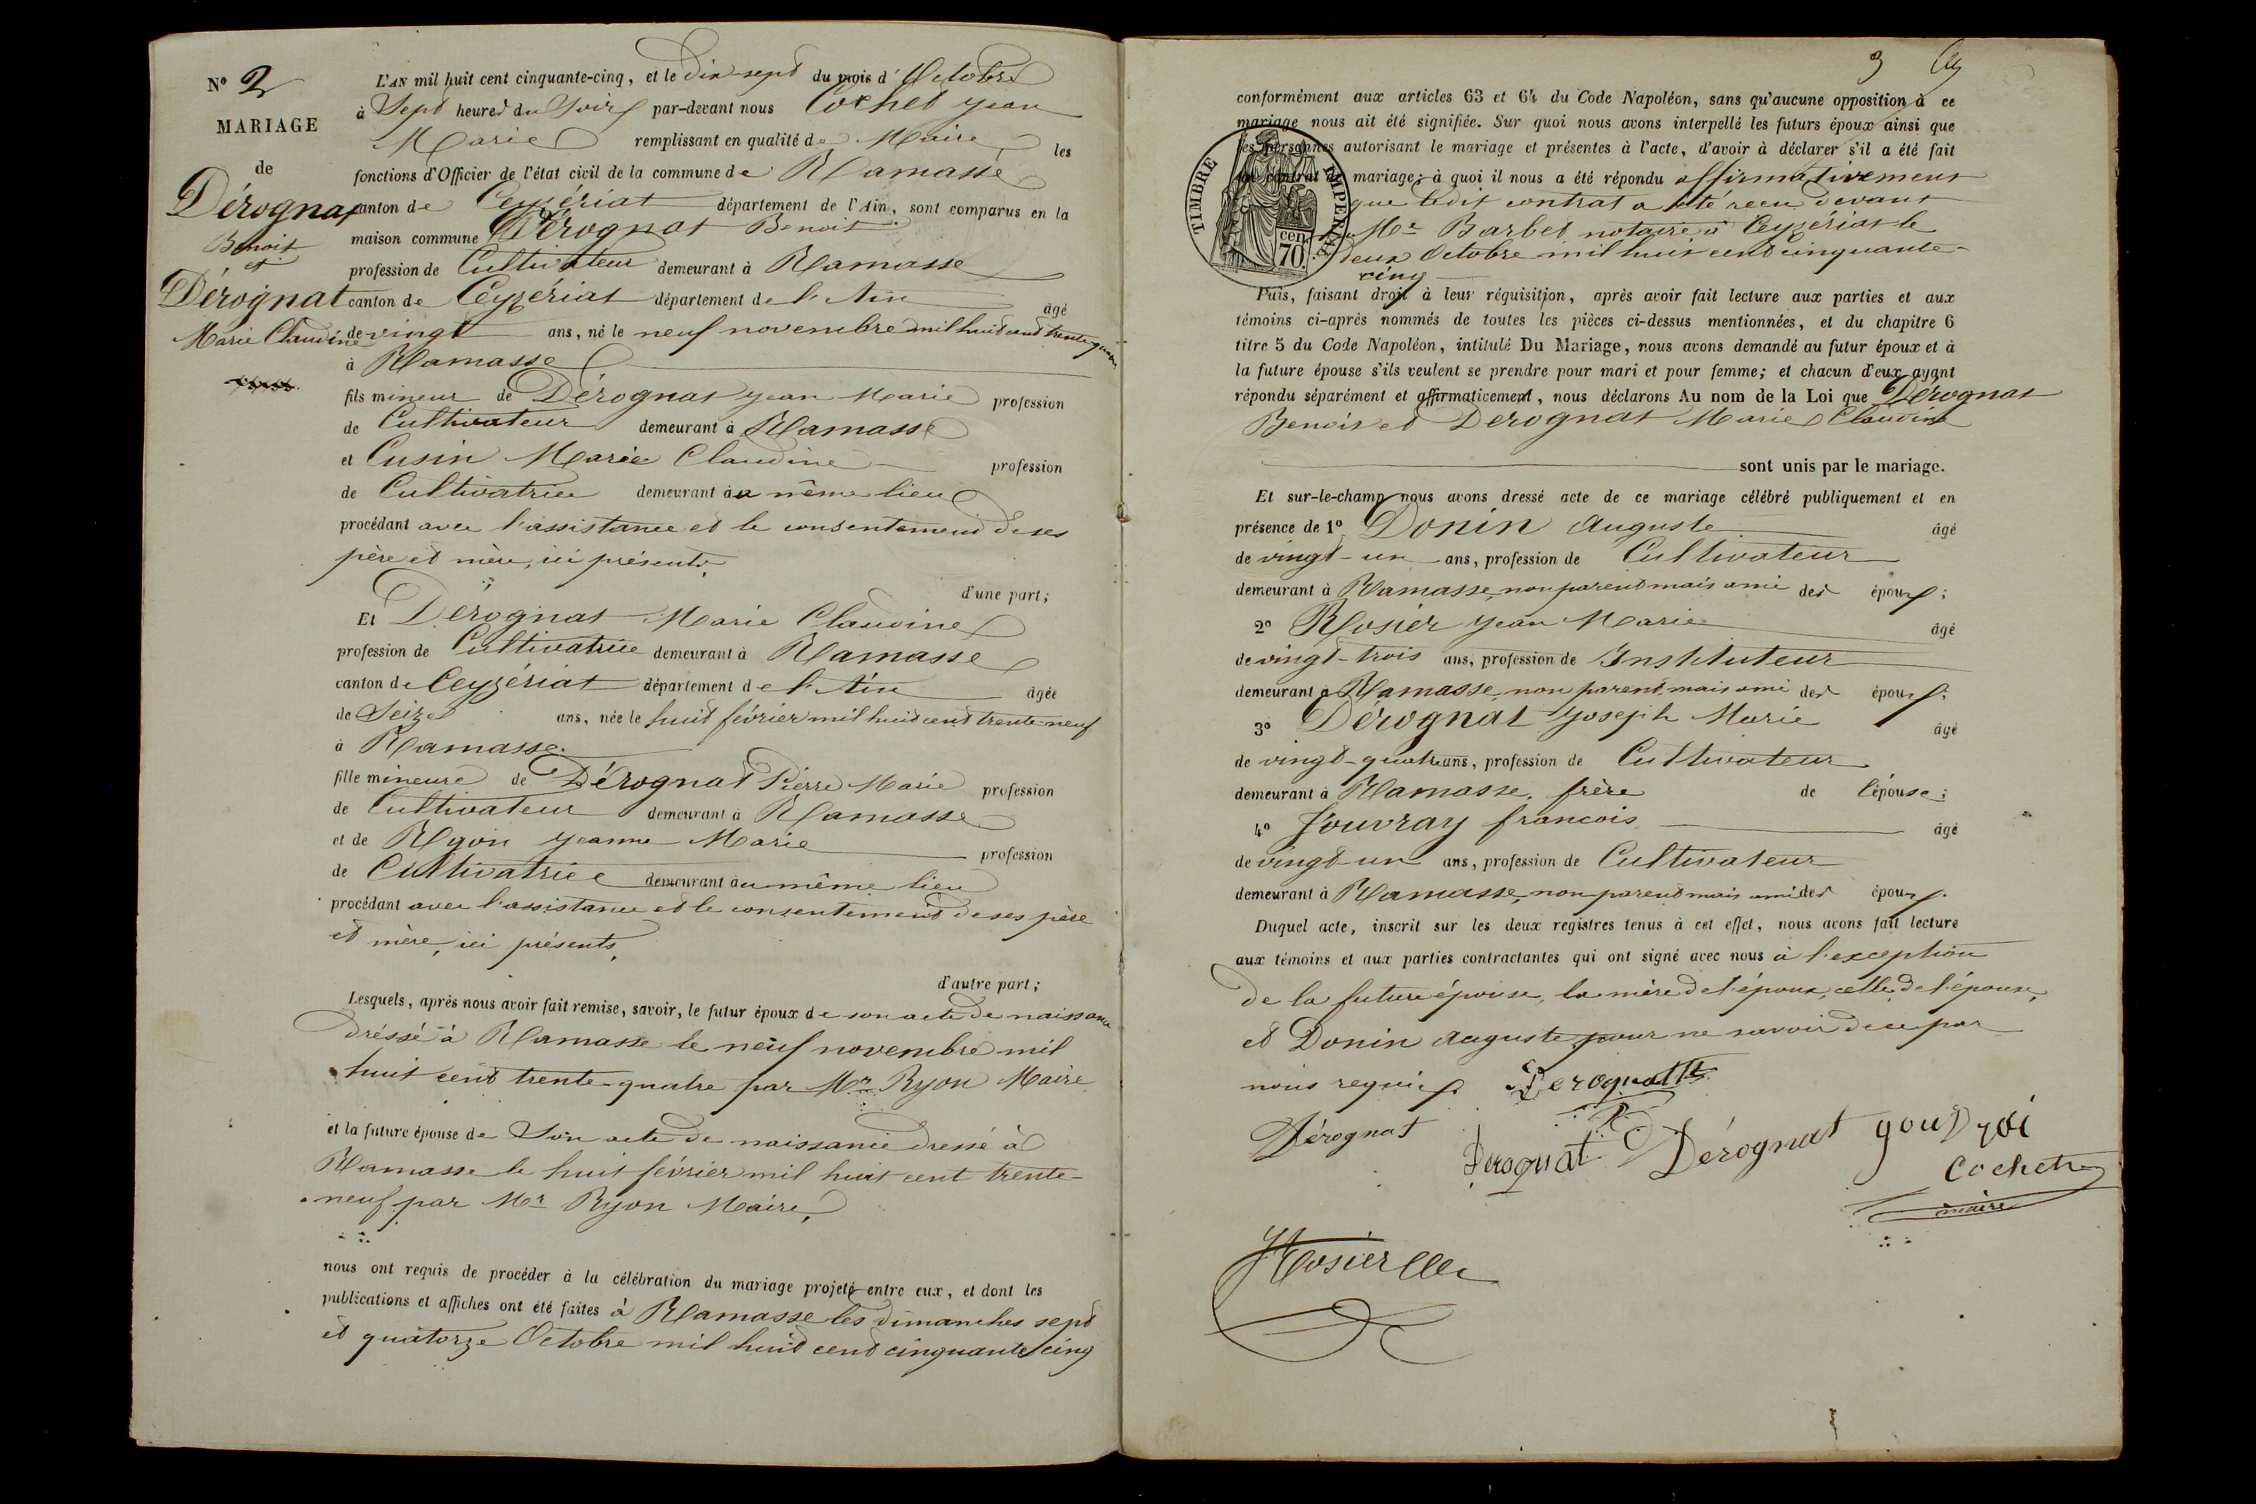 N° 2
MARIAGE
de
Dérognat
Benoit
et
Dérognat
Marie Claudine
L'AN mil huit cent cinquante-cinq, et le dix-sept du mois d'Octobre
à Sept heures du Soir par-devant nous Cochet Jean
Marie remplissant en qualité de Maire les
fonctions d'Officier de l'état civil de la commune de Ramasse
canton de Ceyzériat département de l'Ain, sont comparus en la
maison commune Dérognat Benoit
profession de Cultivateur demeurant à Ramasse
canton de Ceyzériat département de l'Ain âgé
de vingt ans, né le neuf novembre mil huit cent trente quatre
à Ramasse
fils mineur de Dérognat Jean Marie profession
de Cultivateur demeurant à Ramasse
et Cusin Marie Claudine profession
de Cultivatrice demeurant au même lieu
procédant avec l'assistance et le consentement de ses
père et mère, ici présents,
d'une part;
Et Dérognat Marie Claudine
profession de Cultivatrice demeurant à Ramasse
canton de Ceyzériat département de l'Ain âgée
de Seize ans, née le huit février mil huit cent trente-neuf
à Ramasse.
fille mineure de Dérognat Pierre Marie profession
de Cultivateur demeurant à Ramasse
et de Ryon Jeanne Marie profession
de Cultivatrice demeurant au même lieu
procédant avec l'assistance et le consentement de ses père
et mère, ici présents,
d'autre part;
Lesquels, après nous avoir fait remise, savoir, le futur époux de son acte de naissance
dréssé à Ramasse le neuf novembre mil
huit cent trente-quatre par Mr Ryon Maire
et la future épouse de Son acte de naissance dressé à
Ramasse le huit février mil huit cent trente-
neuf par Mr Ryon Maire,
nous ont requis de procéder à la célébration du mariage projeté entre eux, et dont les
publications et affiches ont été faites à Ramasse les dimanches sept
et quatorze Octobre mil huit cent cinquante cinq
3
conformément aux articles 63 et 64 du Code Napoléon, sans qu'aucune opposition à ce
mariage nous ait été signifiée. Sur quoi nous avons interpellé les futurs époux ainsi que
les personnes autorisant le mariage et présentes à l'acte, d'avoir à déclarer s'il a été fait
un contrat de mariage; à quoi il nous a été répondu affirmativement
que ledit contrat a été reçu devant
Me Barbet notaire à Ceyzériat le
deux Octobre mil huit cent cinquante-
cinq
TIMBRE IMPÉRIAL
cen.
70.
Puis, faisant droit à leur réquisition, après avoir fait lecture aux parties et aux
témoins ci-après nommés de toutes les pièces ci-dessus mentionnées, et du chapitre 6
titre 5 du Code Napoléon, intitulé Du Mariage, nous avons demandé au futur époux et à
la future épouse s'ils veulent se prendre pour mari et pour femme; et chacun d'eux ayant
répondu séparément et affirmativement, nous déclarons Au nom de la Loi que Dérognat
Benoit et Dérognat Marie Claudine
sont unis par le mariage.
Et sur-le-champ nous avons dressé acte de ce mariage célébré publiquement et en
présence de 1° Donin Auguste âgé
de vingt-un ans, profession de Cultivateur
demeurant à Ramasse, non parent mais ami des époux;
2° Rosier Jean Marie âgé
de vingt-trois ans, profession de Instituteur
demeurant à Ramasse, non parent mais ami des époux;
3° Dérognat Joseph Marie âgé
de vingt-quatre ans, profession de Cultivateur
demeurant à Ramasse, frère de l'épouse;
4° Jouvray françois âgé
de vingt-un ans, profession de Cultivateur
demeurant à Ramasse, non parent mais ami des époux.
Duquel acte, inscrit sur les deux registres tenus à cet effet, nous avons fait lecture
aux témoins et aux parties contractantes qui ont signé avec nous à l'exception
de la future épouse, la mère de l'époux, celle de l'épouse,
et Donin Auguste, pour ne savoir de ce par
nous requis.
Derognat
Dérognat
Derognat
Dérognat
Cochet
maire
Rosier